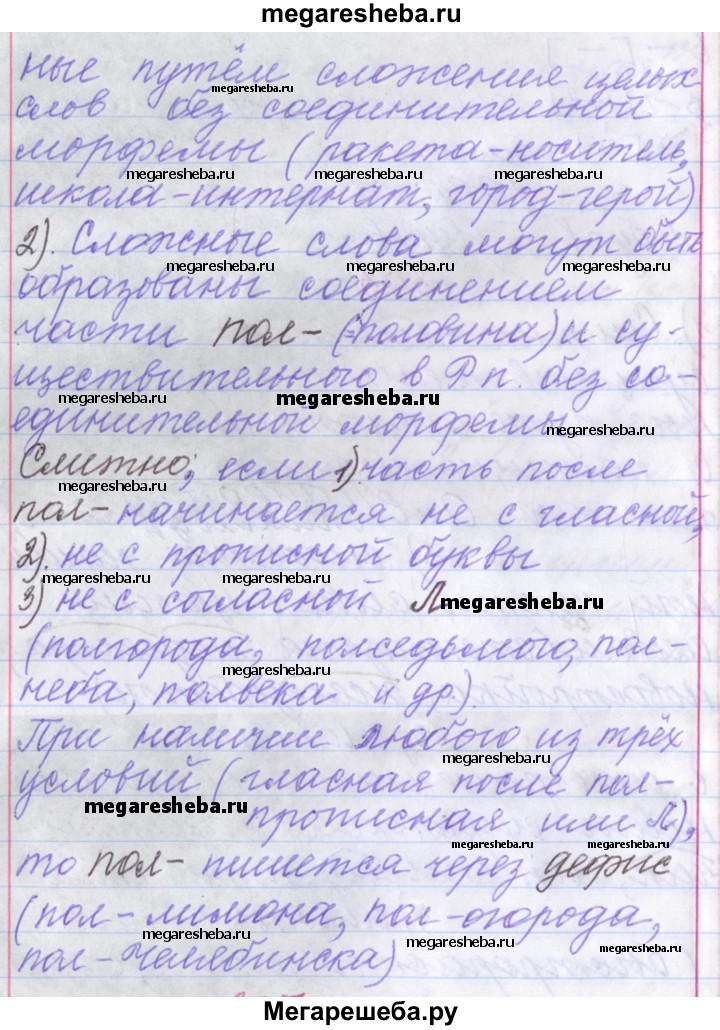 megaresheba.ru
ные путём сложения целых
megaresheba.ru megaresheba.ru
слов без соединительной
морфемы (ракета-носитель,
megaresheba.ru megaresheba.ru megaresheba.ru
школа-интернат, город-герой)
2). Сложные слова могут быть
megaresheba.ru megaresheba.ru megaresheba.ru
образованы соединением
части пол- (=половина) и су-
ществительного в Р п. без со-
megaresheba.ru megaresheba.ru
единительной морфемы
megaresheba.ru
Слитно, если 1) часть после
megaresheba.ru megaresheba.ru
пол- начинается не с гласной,
2). не с прописной буквы
megaresheba.ru megaresheba.ru megaresheba.ru
3) не с согласной Л
megaresheba.ru
(полгорода, полседьмого, пол-
megaresheba.ru
неба, полвека и др.).
При наличии любого из трёх
megaresheba.ru
условий (гласная после пол-
megaresheba.ru megaresheba.ru
прописная или Л),
megaresheba.ru megaresheba.ru
то пол- пишется через дефис
megaresheba.ru
(пол-лимона, пол-огорода,
megaresheba.ru megaresheba.ru megaresheba.ru
пол-Челябинска)
Мегарешеба.ру